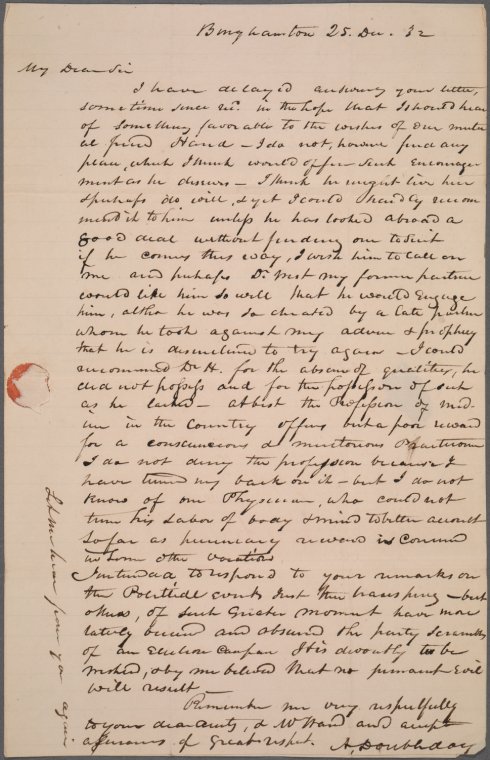 Binghamton 25. Dec. 32
My Dear Sir
I have delayed answering your letter,
sometime since rec. in the hope that I should hear
of something favorable to the wishes of our mutu
al friend Hand – I do not, however find any
place, which I think would offer such encourage
ment as he desires – I think he might live here
& perhaps do well, & yet I could hardly recom
mend it to him unless he has looked abroad a
good deal without finding one to suit
if he comes this way, I wish him to call on
me and perhaps Dr West my former partner
would like him so well that he would Engage
him, altho he was so cheated by a late partner
whom he took against my advice & prophecy
that he is disinclined to try again – I could
recommend Dr H. for the absence of qualities, he
did not possess and for the possession of such
as he lacked – at best the Profession of med-
icine in the Country offers but a poor reward
for a conscientious & meritorious Practitioner
I do not deny the profession because I
have turned my back on it – but I do not
know of one Physician, who could not
turn his labor of body & mind to better account
so far as pecuniary reward is concerned
in some other vocation
I intended to respond to your remarks on
the Political events just then transpiring – but
others, of such Greater moment have more
lately occured and absorbed the party scramble
of an Election Campaign It is devoutly to be
wished, & by me believed that no permanent Evil
will result –
Remember me very respectfully
to your dear Aunty, & Mr Hand and accept
assurances of Great respect. A, Doubleday
Let me hear from you again